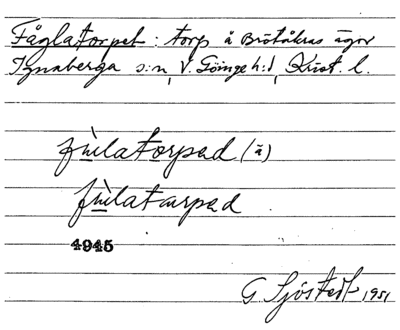 Fåglatorpet: torp å Brötåkras ägor
Ignaberga s:n, V. Göinge h:d, Krist. l.
fù̱latorpad (ā)
fù̱latarpad
4945
G. Sjöstedt 1951